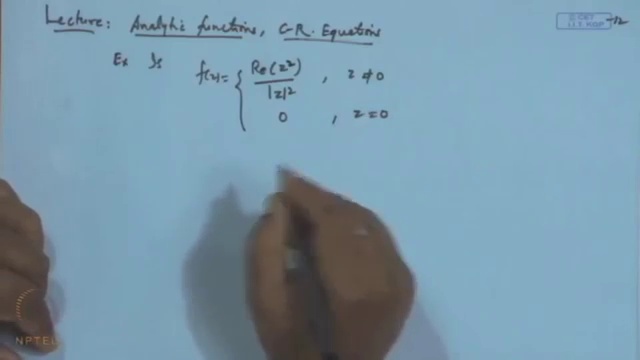 Lecture: Analytic functions, C-R. Equations
© CET
I.I.T. KGP
Ex Is f(z) = { Re(z²) / |z|² , z ≠ 0
0 , z = 0
NPTEL